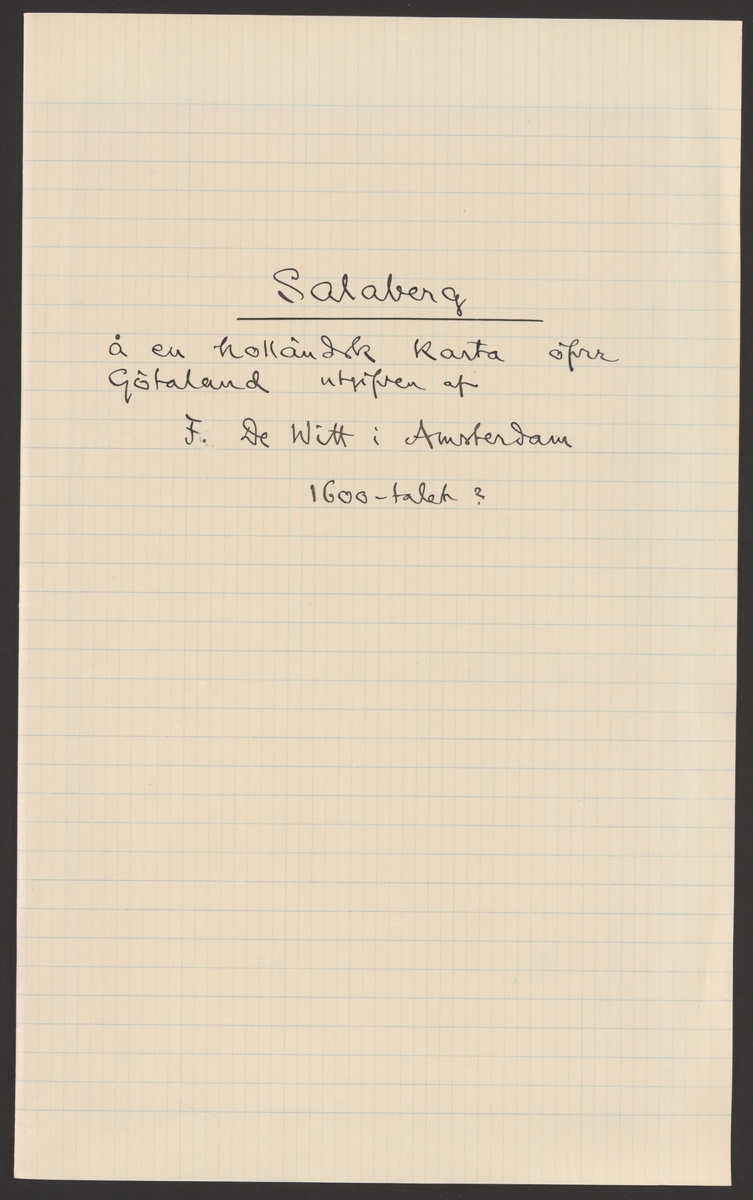 Salaberg
å en holländsk karta öfver
Götaland utgifven af
F. De Witt i Amsterdam
1600-talet ?